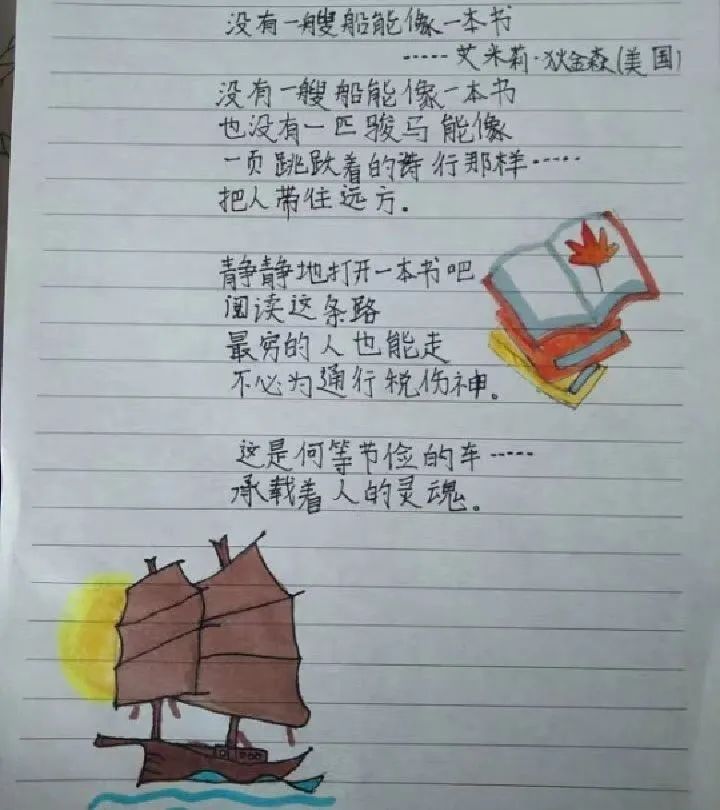 没有一艘船能像一本书
·····艾米莉·狄金森(美国)
没有一艘船能像一本书
也没有一匹骏马能像
一页跳跃着的诗行那样·····
把人带往远方.
静静地打开一本书吧
阅读这条路
最穷的人也能走
不必为通行税伤神。
这是何等节俭的车·····
承载着人的灵魂。